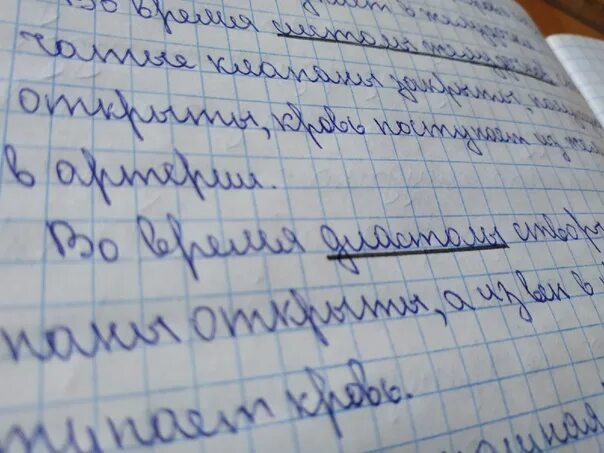 Во время систолы желудочков
чатые клапаны закрыты, полу
открыты, кровь поступает из же
в артерии.
Во время диастолы створ
паны открыты, а из вен в
тупает кровь.